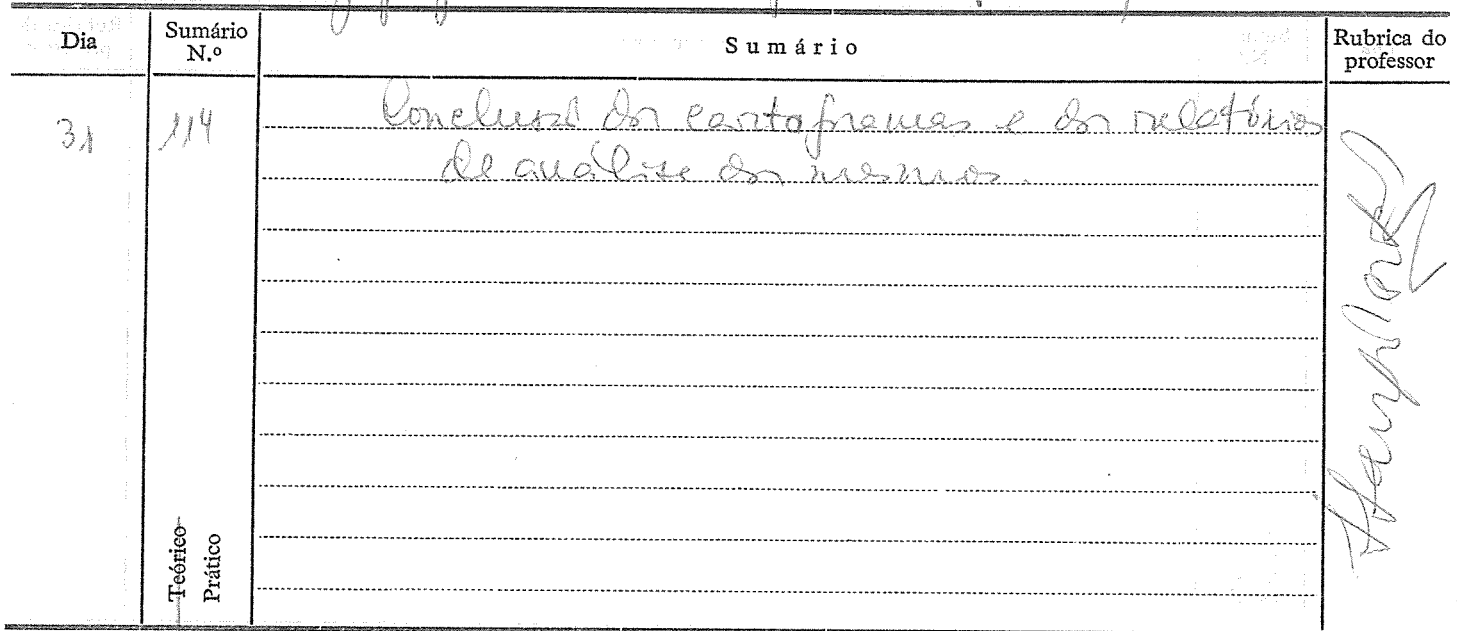 Dia
Sumário N.º
Sumário
Rubrica do professor
31
114
Conclusão dos cartogramas e dos relatórios
de análise dos mesmos.
Teórico
Prático